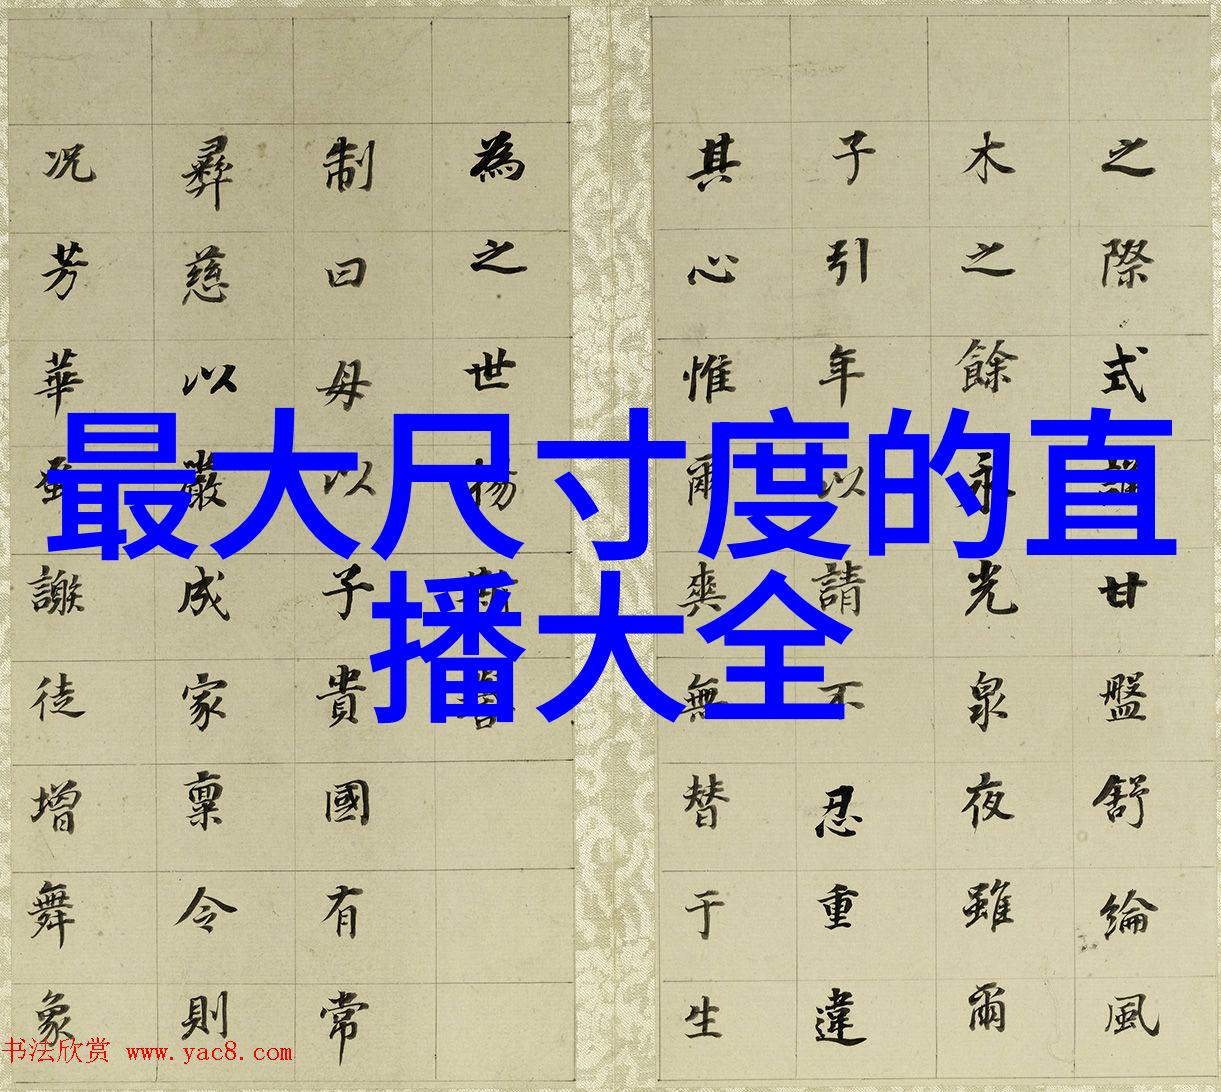 最大尺寸度的直
播大全
之際式甘盤舒綸風
木之餘永光泉夜雖爾
子引年以請不忍重違
其心惟爾爽無替于生
為之世
制曰母以子貴國有常
彝慈以嚴成家稟令則
況芳華蚤謝徒增舞象
书法欣赏 www.yac8.com